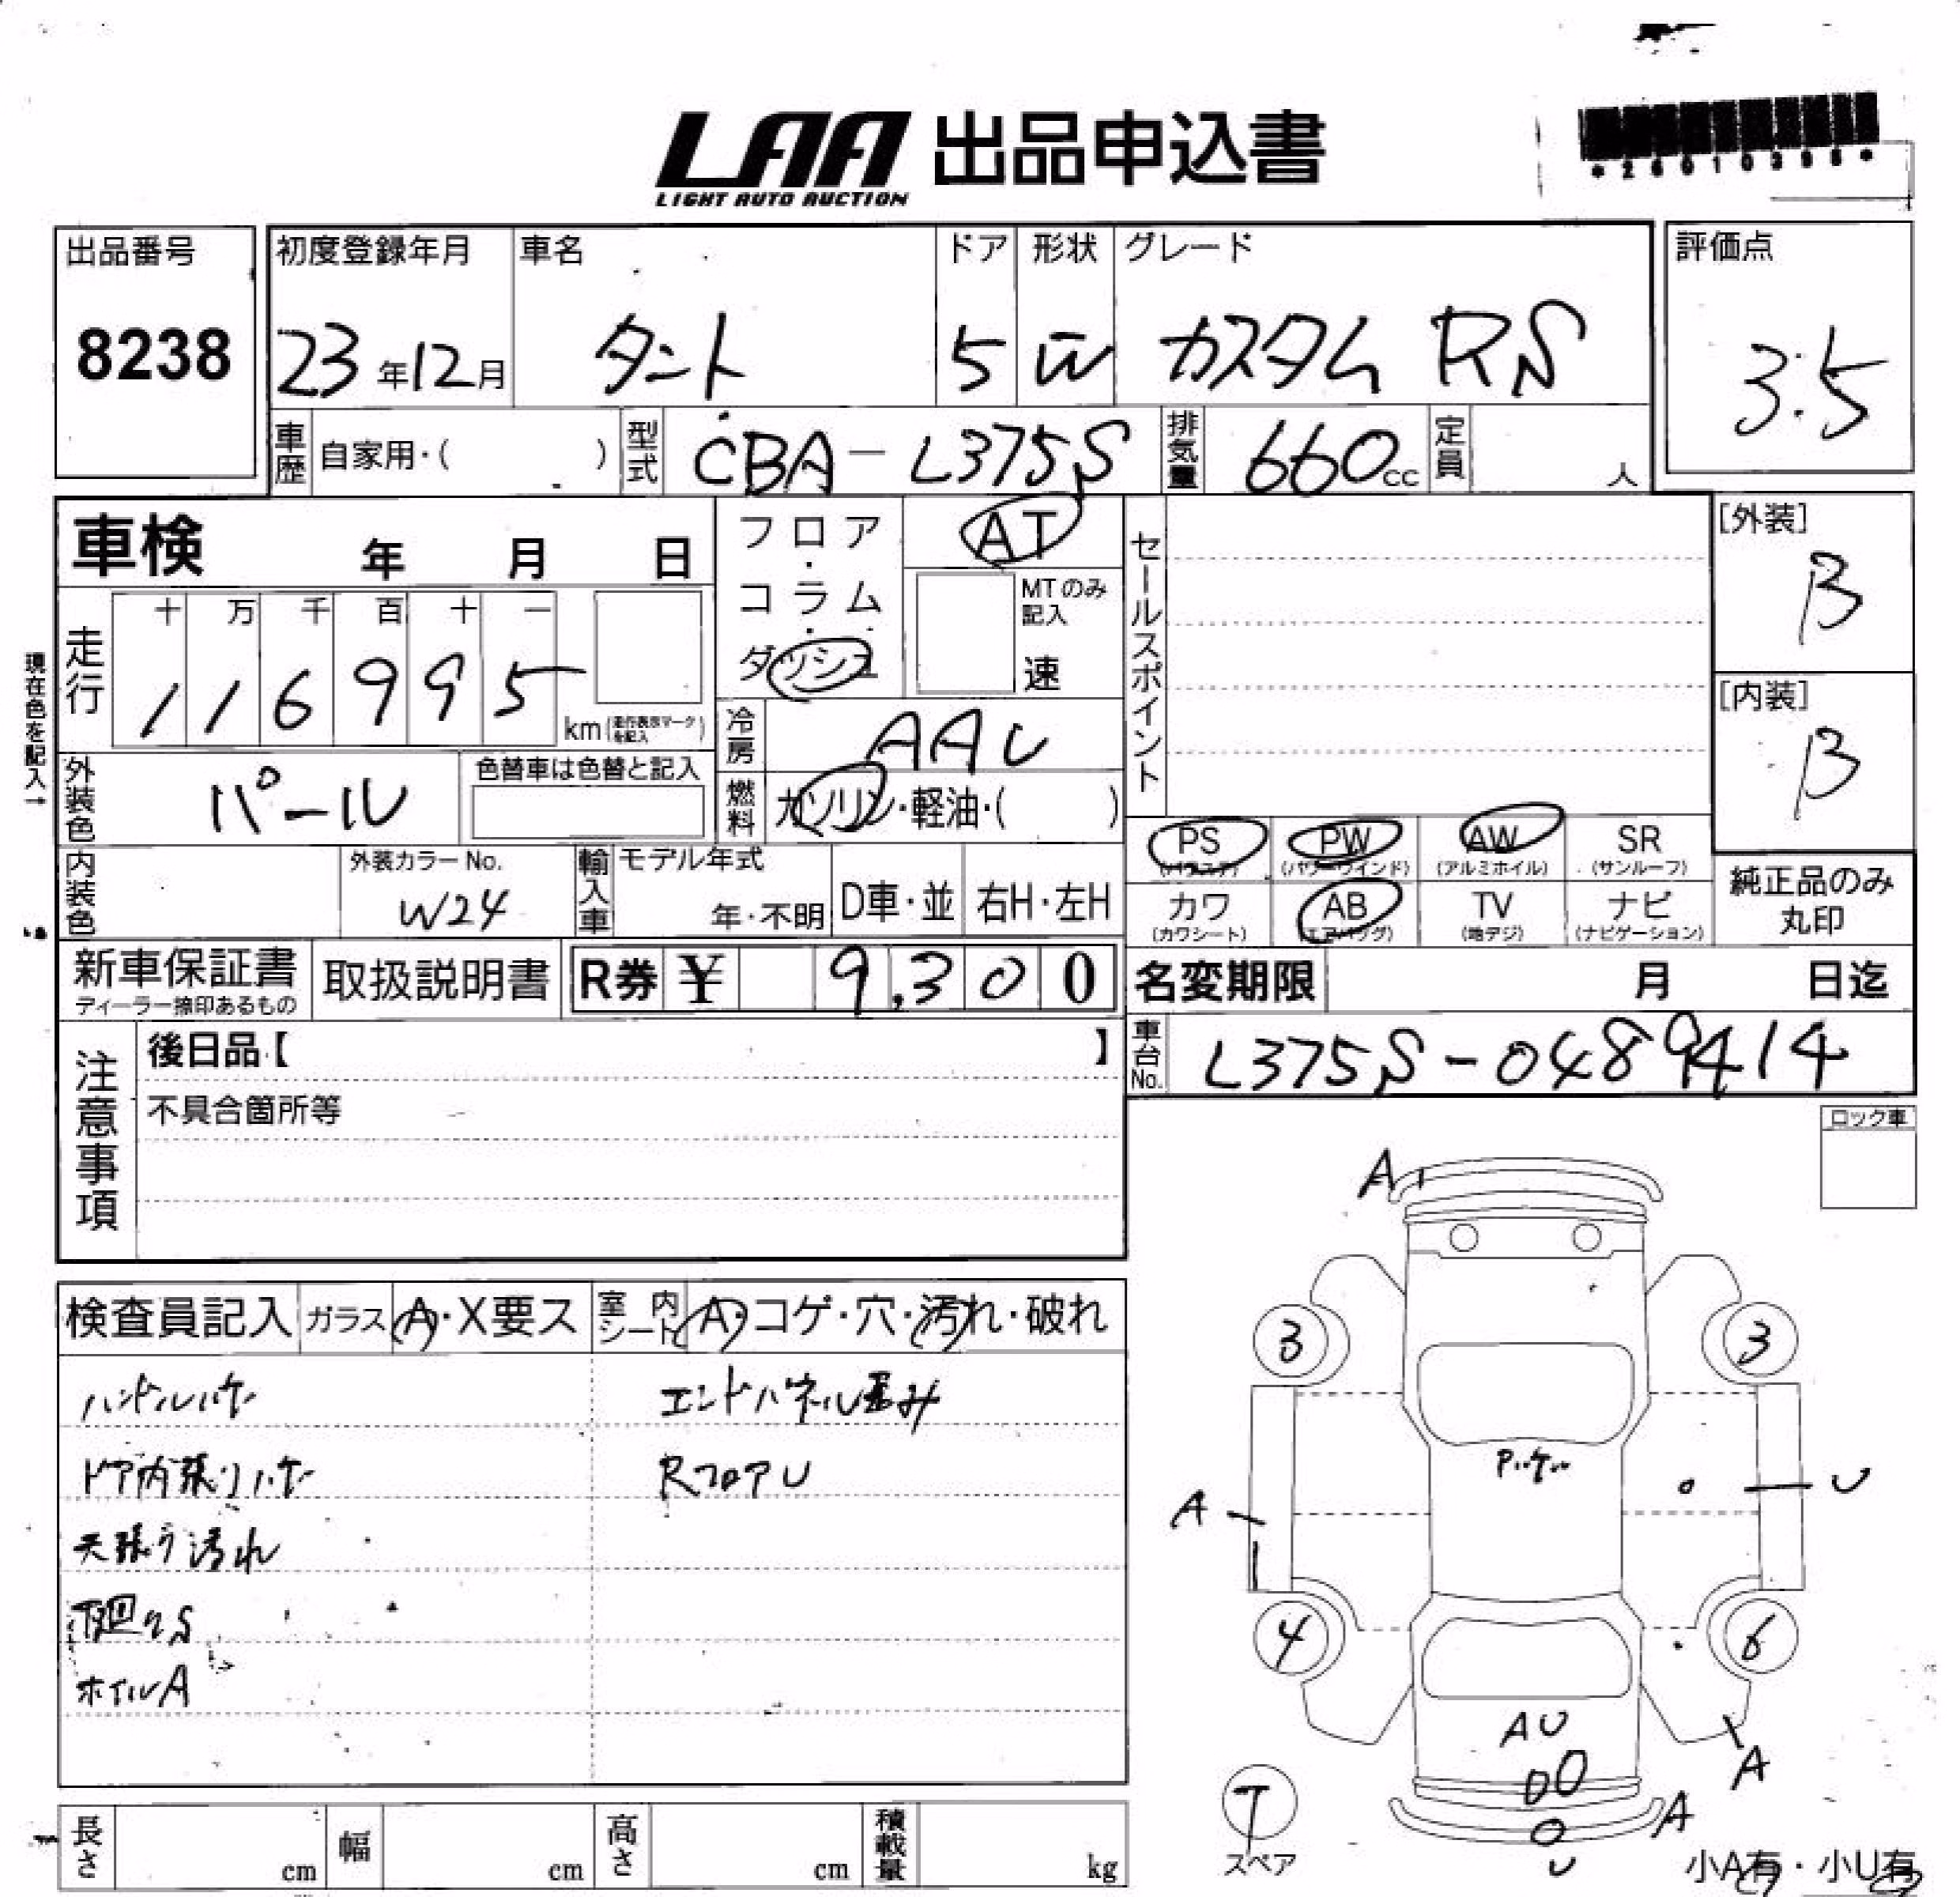 LAA 出品申込書
LIGHT AUTO AUCTION
出品番号 初度登録年月 車名 ドア 形状 グレード 評価点
8238 23年12月 タント 5 W カスタム RS 3.5
車歴 自家用・( ) 型式 CBA-L375S 排気量 660cc 定員 人
車検 年 月 日
フロア・コラム・ダッシュ
AT
MTのみ記入
速
セールスポイント
[外装]
B
[内装]
B
現在色を記入
走行 十 万 千 百 十 一
1 1 6 9 9 5 km
冷房 AAC
外装色 パール 色替車は色替と記入
燃料 ガソリン・軽油・( )
内装色 外装カラーNo. W24
輸入車 モデル年式 年・不明 D車・並 右H・左H
PS (パワステ) PW (パワーウインド) AW (アルミホイル) SR (サンルーフ)
カワ (カワシート) AB (エアバッグ) TV (地デジ) ナビ (ナビゲーション)
純正品のみ丸印
新車保証書
ディーラー捺印あるもの
取扱説明書
R券 ¥ 9,300
名変期限 月 日迄
車台No. L375S-0489414
注意事項
後日品【 】
不具合箇所等
ロック車
検査員記入 ガラス A・X要ス 室内シート A・コゲ・穴・汚れ・破れ
ハンドルハゲ エンドパネル歪み
ドア内張りハゲ RフロアU
天張り汚れ
下廻りS
ホイルA
A
3 3
A U
4 6
AU
A
A
U
T
スペア
小A有・小U有
長さ cm 幅 cm 高さ cm 積載量 kg